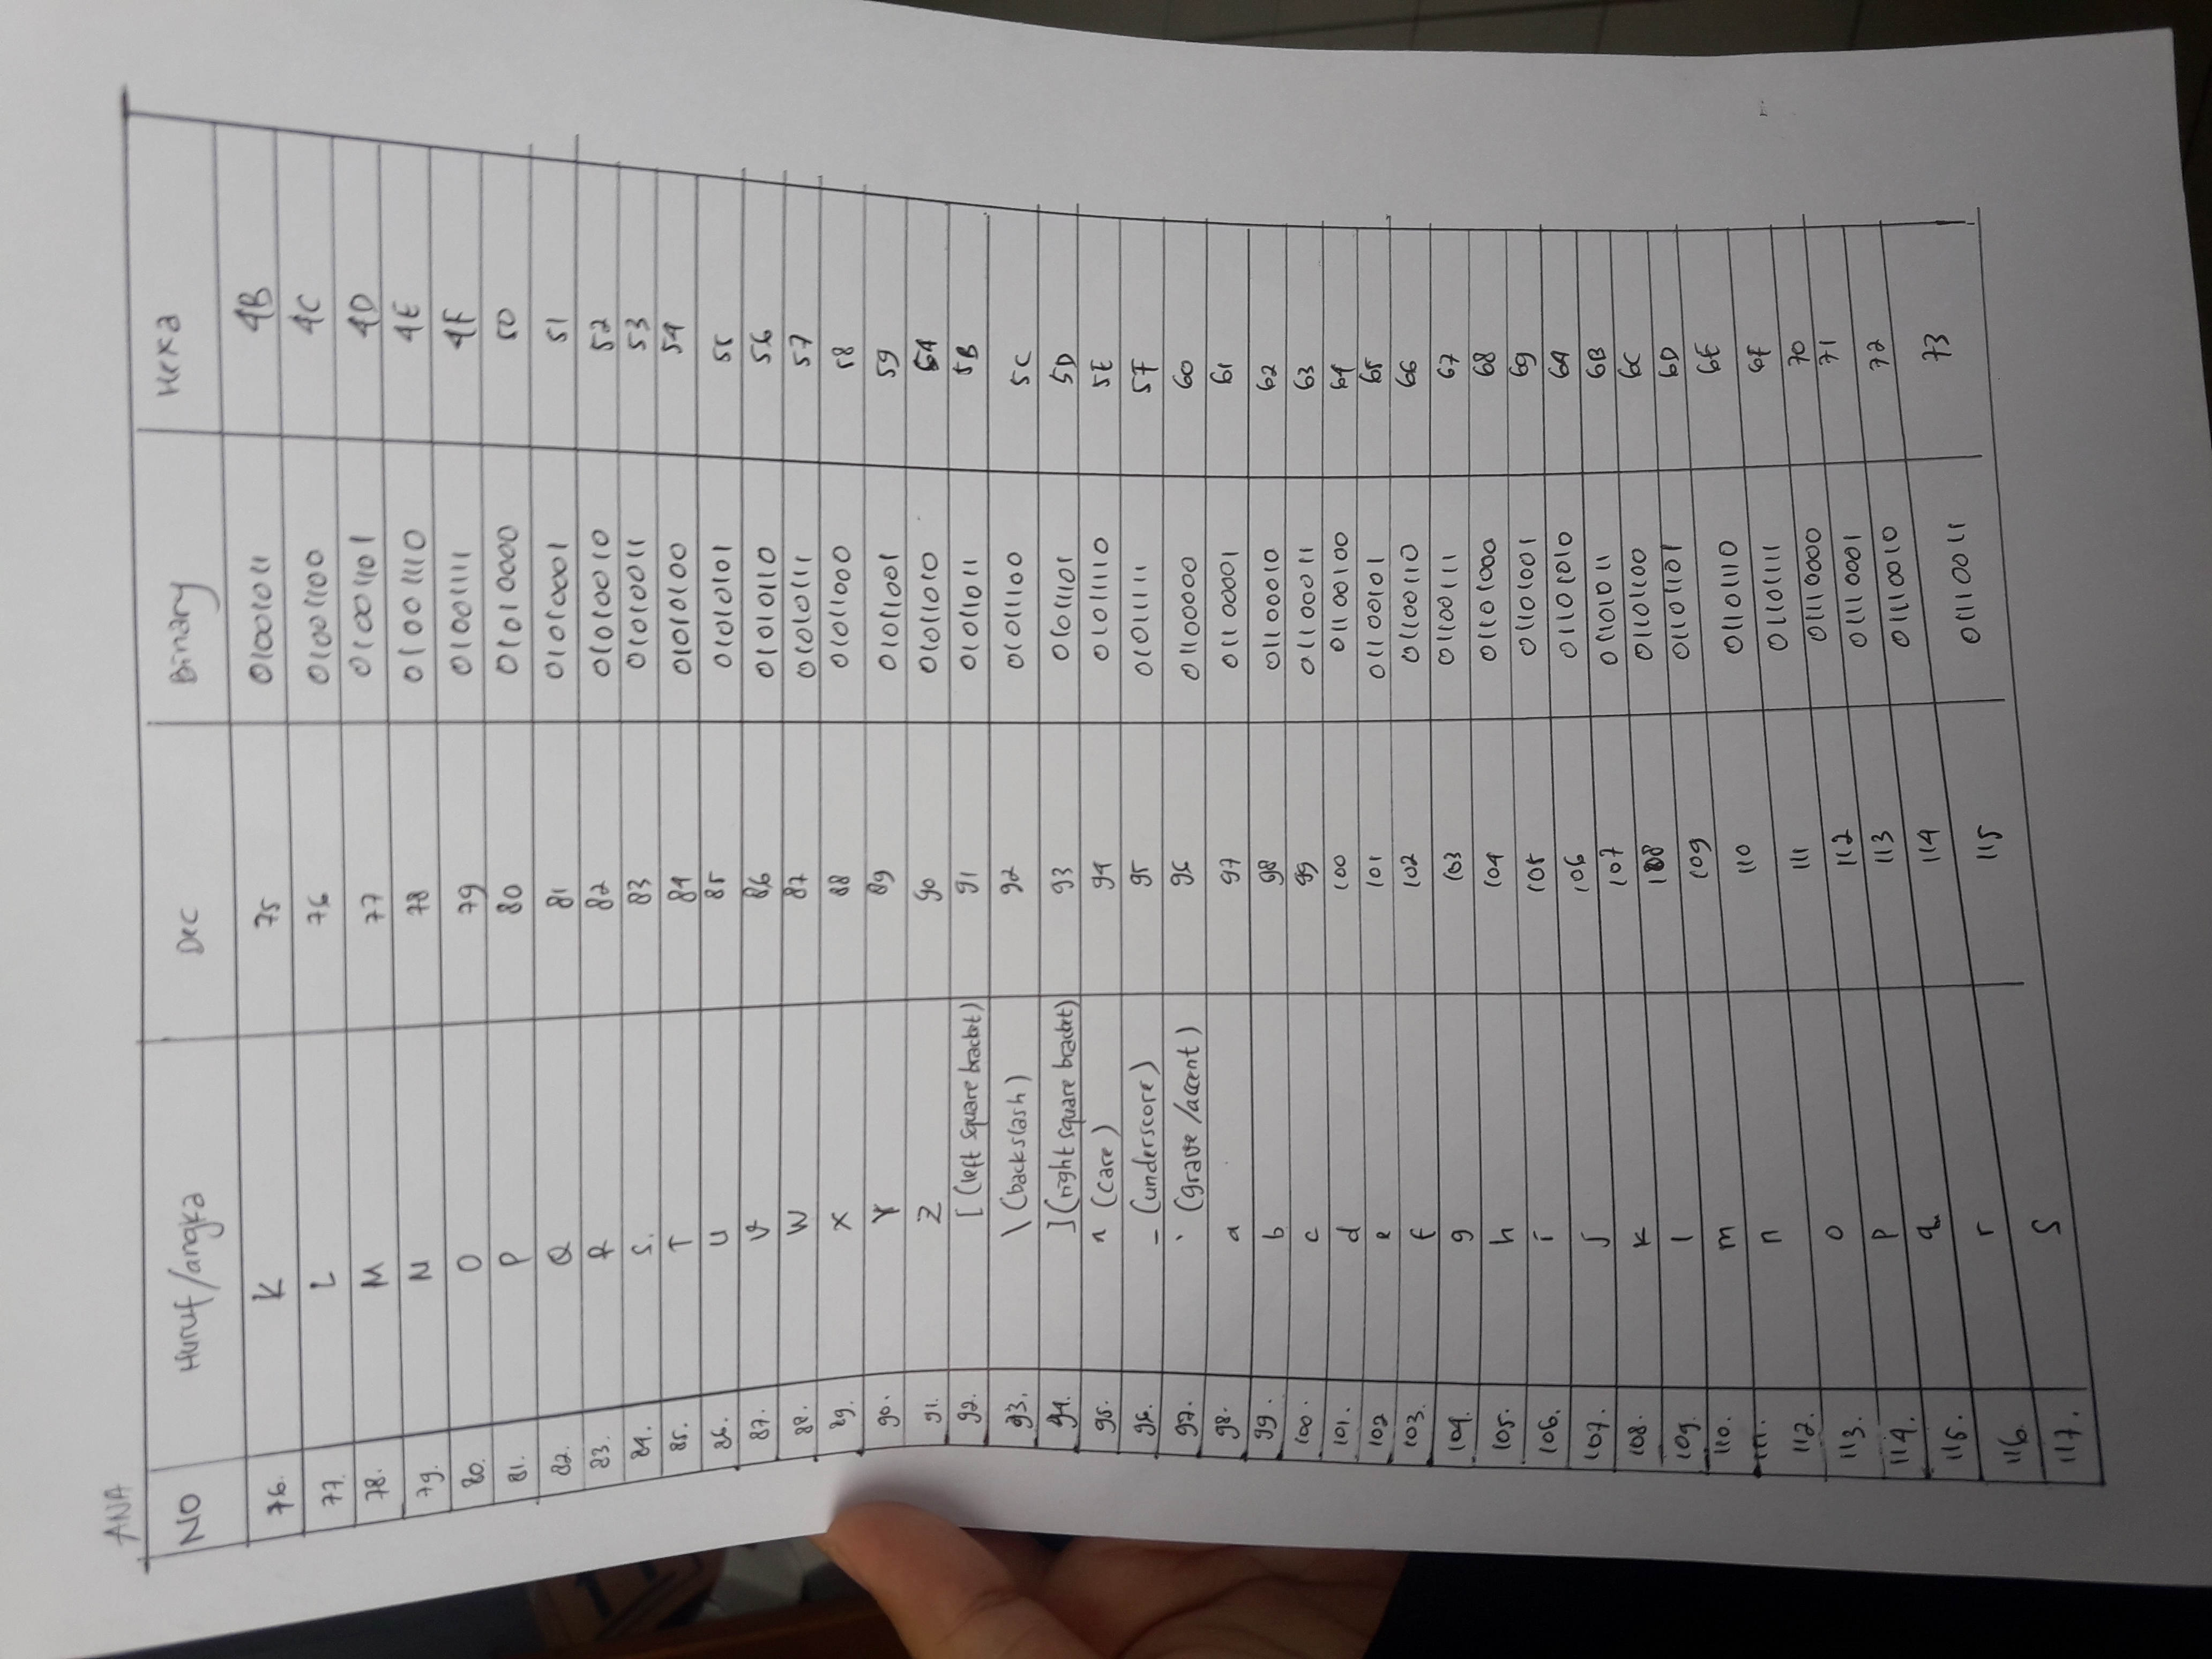 ANA
NO Huruf/angka Dec Binary Hexa
76. K 75 01001011 4B
77. L 76 01001100 4C
78. M 77 01001101 4D
79. N 78 01001110 4E
80. O 79 01001111 4F
81. P 80 01010000 50
82. Q 81 01010001 51
83. R 82 01010010 52
84. S. 83 01010011 53
85. T 84 01010100 54
86. U 85 01010101 55
87. V 86 01010110 56
88. W 87 01010111 57
89. X 88 01011000 58
90. Y 89 01011001 59
91. Z 90 01011010 5A
92. [ (left square bracket) 91 01011011 5B
93. \ (backslash) 92 01011100 5C
94. ] (right square bracket) 93 01011101 5D
95. ^ (care) 94 01011110 5E
96. _ (underscore) 95 01011111 5F
97. ` (grave/accent) 96 01100000 60
98. a 97 01100001 61
99. b 98 01100010 62
100. c 99 01100011 63
101. d 100 01100100 64
102 e 101 01100101 65
103. f 102 01100110 66
104. g 103 01100111 67
105. h 104 01101000 68
106. i 105 01101001 69
107. j 106 01101010 6A
108. k 107 01101011 6B
109. l 108 01101100 6C
110. m 109 01101101 6D
111.
112. n 110 01101110 6E
113. o 111 01101111 6F
114. p 112 01110000 70
115. q 113 01110001 71
116. r 114 01110010 72
117. s 115 01110011 73